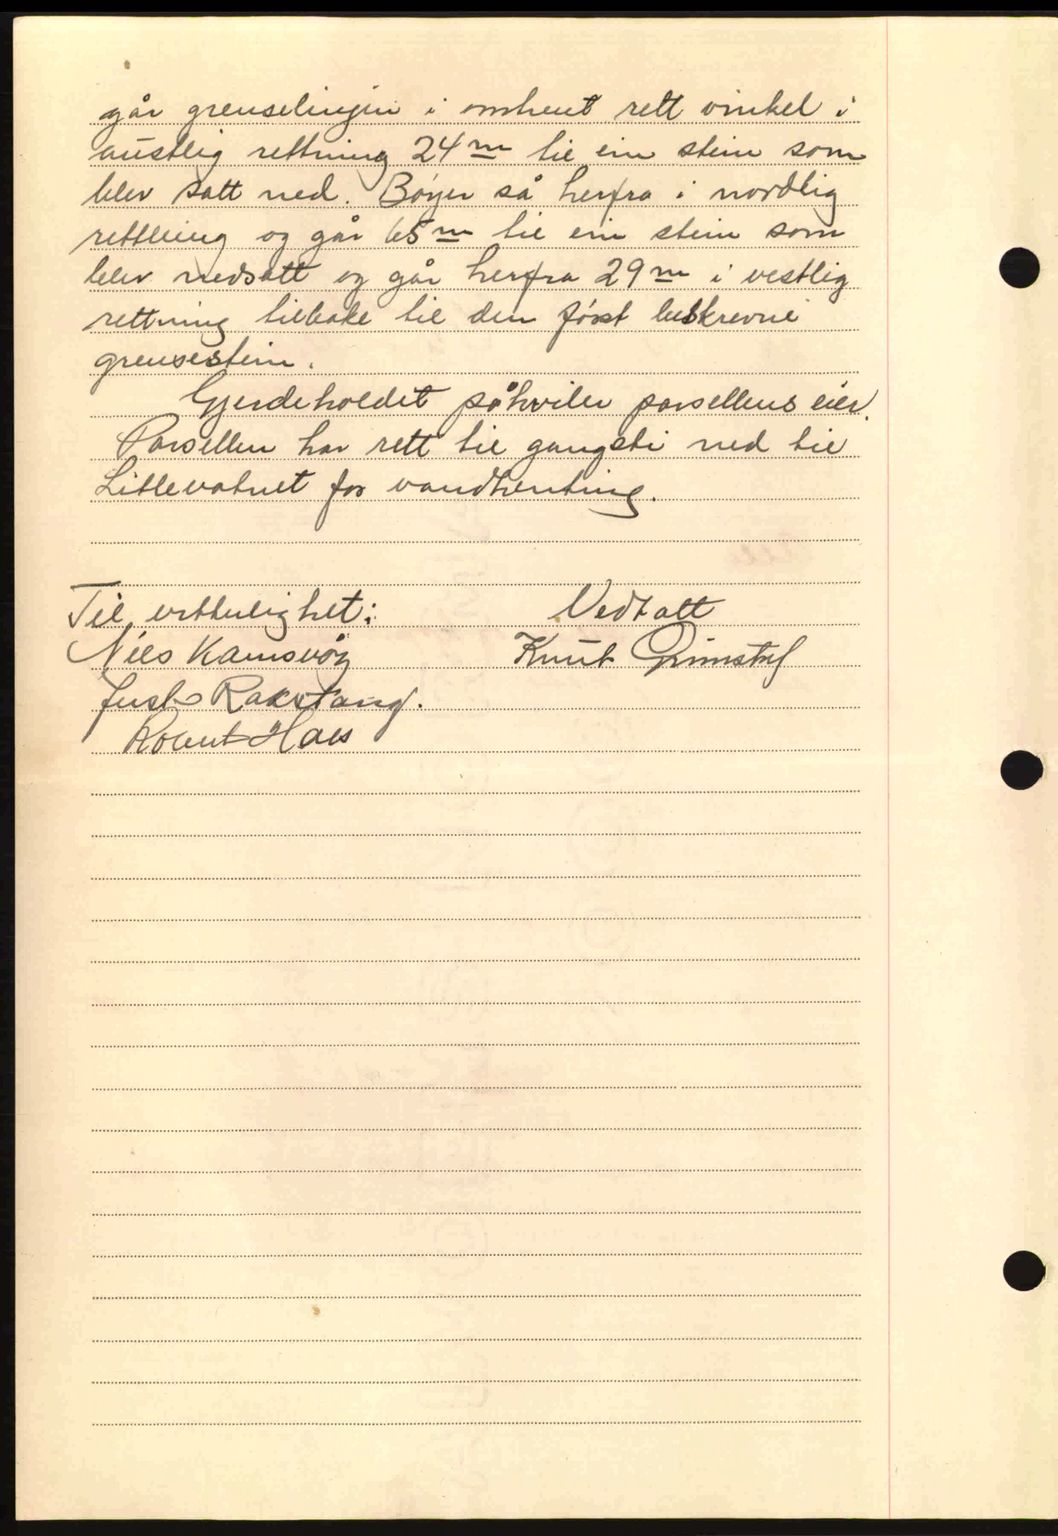 går grenselinjen i omtrent rett vinkel i
austlig rettning 24 m til ein stein som
blev satt ned. Bøyer så herfra i nordlig
rettning og går 65 m til ein stein som
blev nedsatt og går herfra 29 m i vestlig
rettning tilbake til den først beskrevne
grensestein.
Gjerdeholdet påhviler parsellens eier.
Parsellen har rett til gangsti ned til
Litlevatnet for vandhenting.
Til vitterlighet: Vedtatt
Nils Knut
Robert